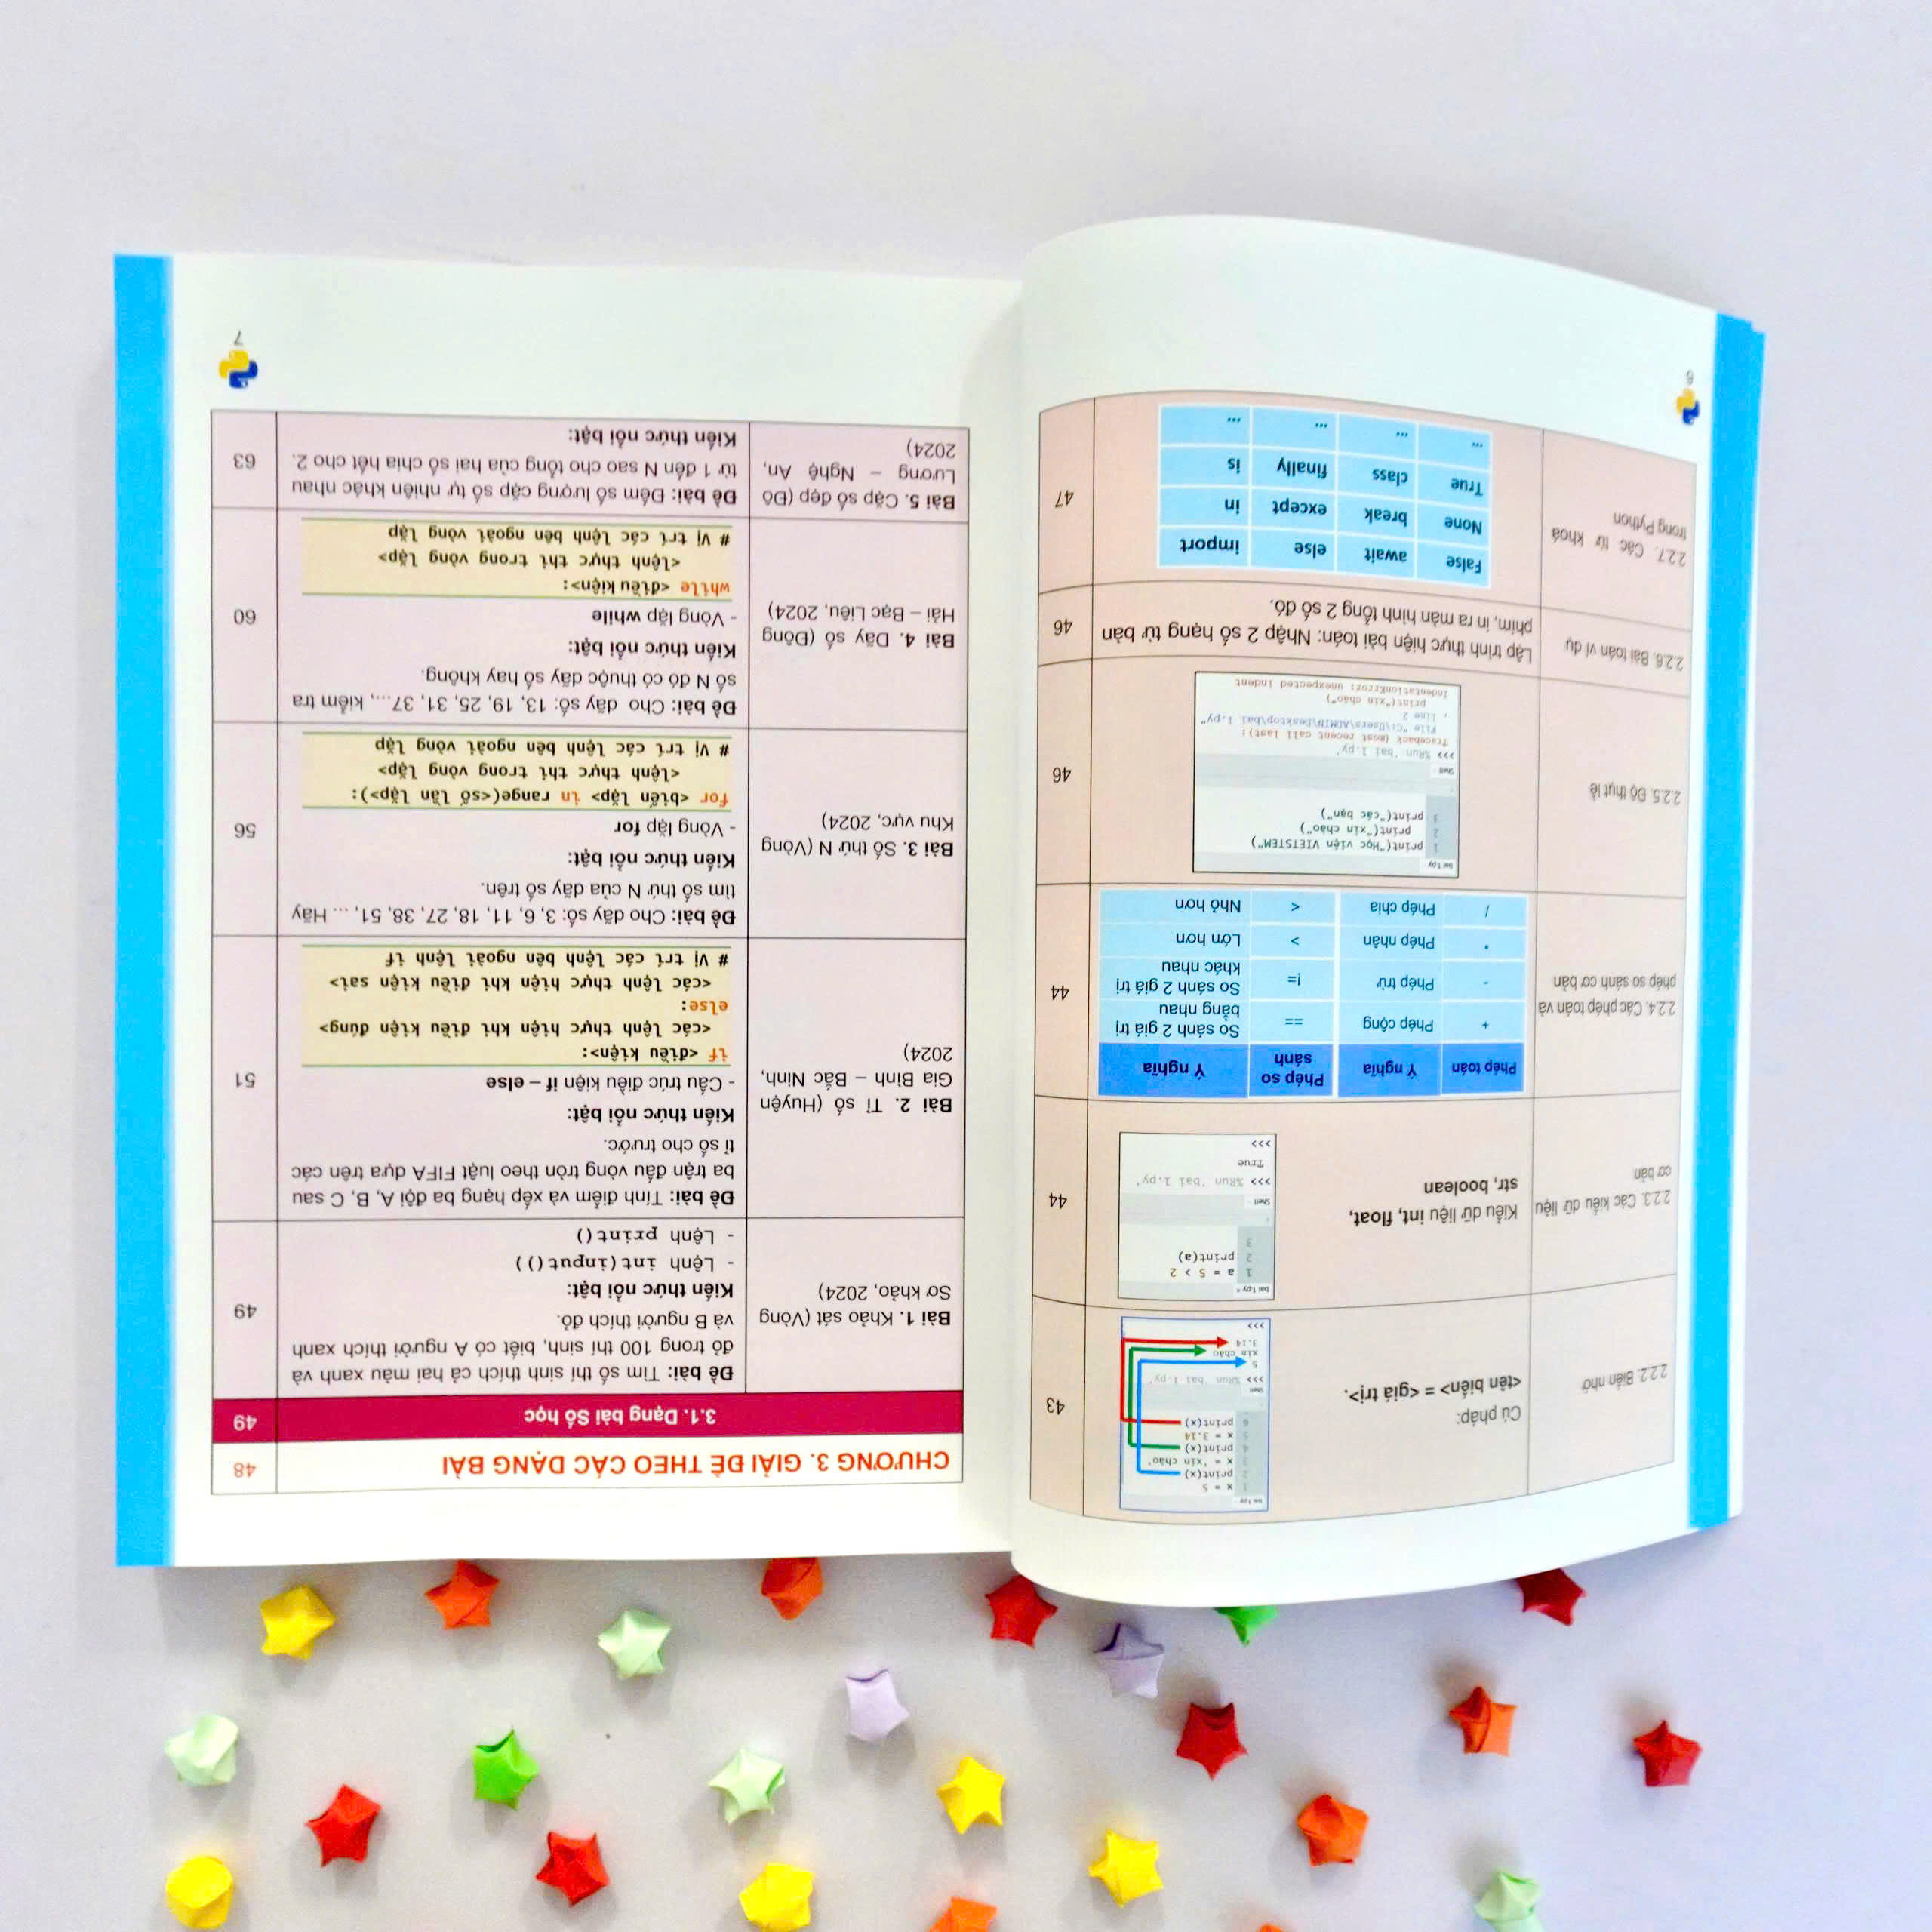 2.2.2. Biến nhớ
Cú pháp:
<tên biến> = <giá trị>.
bai 1.py
1 x = 5
2 print(x)
3 x = 'xin chào'
4 print(x)
5 x = 3.14
6 print(x)
Shell
>>> %Run 'bai 1.py'
5
xin chào
3.14
>>>
43
2.2.3. Các kiểu dữ liệu
cơ bản
Kiểu dữ liệu int, float,
str, boolean
bai 1.py *
1 a = 5 > 2
2 print(a)
3
Shell
>>> %Run 'bai 1.py'
True
>>>
44
2.2.4. Các phép toán và
phép so sánh cơ bản
Phép toán Ý nghĩa Phép so sánh Ý nghĩa
+ Phép cộng == So sánh 2 giá trị
bằng nhau
- Phép trừ != So sánh 2 giá trị
khác nhau
* Phép nhân > Lớn hơn
/ Phép chia < Nhỏ hơn
44
2.2.5. Độ thụt lề
bai 1.py
1 print("Học viện VIETSTEM")
2 print("xin chào")
3 print("các bạn")
Shell
>>> %Run 'bai 1.py'
Traceback (most recent call last):
File "C:\Users\ADMIN\Desktop\bai 1.py"
, line 2
print("xin chào")
IndentationError: unexpected indent
46
2.2.6. Bài toán ví dụ
Lập trình thực hiện bài toán: Nhập 2 số hạng từ bàn
phím, in ra màn hình tổng 2 số đó.
46
2.2.7. Các từ khoá
trong Python
False await else import
None break except in
True class finally is
... ... ... ...
47
6
CHƯƠNG 3. GIẢI ĐỀ THEO CÁC DẠNG BÀI 48
3.1. Dạng bài Số học 49
Bài 1. Khảo sát (Vòng
Sơ khảo, 2024)
Đề bài: Tìm số thí sinh thích cả hai màu xanh và
đỏ trong 100 thí sinh, biết có A người thích xanh
và B người thích đỏ.
Kiến thức nổi bật:
- Lệnh int(input())
- Lệnh print()
49
Bài 2. Tỉ số (Huyện
Gia Bình – Bắc Ninh,
2024)
Đề bài: Tính điểm và xếp hạng ba đội A, B, C sau
ba trận đấu vòng tròn theo luật FIFA dựa trên các
tỉ số cho trước.
Kiến thức nổi bật:
- Cấu trúc điều kiện if – else
if <điều kiện>:
<các lệnh thực hiện khi điều kiện đúng>
else:
<các lệnh thực hiện khi điều kiện sai>
# Vị trí các lệnh bên ngoài lệnh if
51
Bài 3. Số thứ N (Vòng
Khu vực, 2024)
Đề bài: Cho dãy số: 3, 6, 11, 18, 27, 38, 51, ... Hãy
tìm số thứ N của dãy số trên.
Kiến thức nổi bật:
- Vòng lặp for
for <biến lặp> in range(<số lần lặp>):
<lệnh thực thi trong vòng lặp>
# Vị trí các lệnh bên ngoài vòng lặp
56
Bài 4. Dãy số (Đông
Hải – Bạc Liêu, 2024)
Đề bài: Cho dãy số: 13, 19, 25, 31, 37..., kiểm tra
số N đó có thuộc dãy số hay không.
Kiến thức nổi bật:
- Vòng lặp while
while <điều kiện>:
<lệnh thực thi trong vòng lặp>
# Vị trí các lệnh bên ngoài vòng lặp
60
Bài 5. Cặp số đẹp (Đô
Lương – Nghệ An,
2024)
Đề bài: Đếm số lượng cặp số tự nhiên khác nhau
từ 1 đến N sao cho tổng của hai số chia hết cho 2.
Kiến thức nổi bật:
63
7